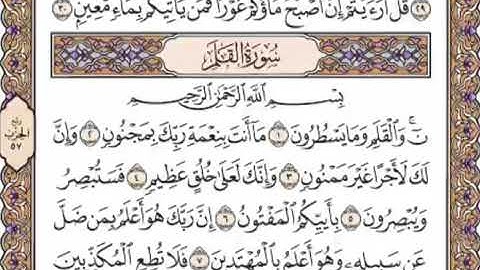 ٢٩ قُلْ أَرَءَيْتُمْ إِنْ أَصْبَحَ مَآؤُكُمْ غَوْرًا فَمَن يَأْتِيكُم بِمَآءٍ مَّعِينٍۭ ٣٠
سُورَةُ القَلَمِ
بِسْمِ ٱللَّهِ ٱلرَّحْمَٰنِ ٱلرَّحِيمِ
نٓ ۚ وَٱلْقَلَمِ وَمَا يَسْطُرُونَ ١ مَآ أَنتَ بِنِعْمَةِ رَبِّكَ بِمَجْنُونٍ ٢ وَإِنَّ
لَكَ لَأَجْرًا غَيْرَ مَمْنُونٍ ٣ وَإِنَّكَ لَعَلَىٰ خُلُقٍ عَظِيمٍ ٤ فَسَتُبْصِرُ
وَيُبْصِرُونَ ٥ بِأَييِّكُمُ ٱلْمَفْتُونُ ٦ إِنَّ رَبَّكَ هُوَ أَعْلَمُ بِمَن ضَلَّ
عَن سَبِيلِهِۦ وَهُوَ أَعْلَمُ بِٱلْمُهْتَدِينَ ٧ فَلَا تُطِعِ ٱلْمُكَذِّبِينَ
ربع
الحزب
٥٧